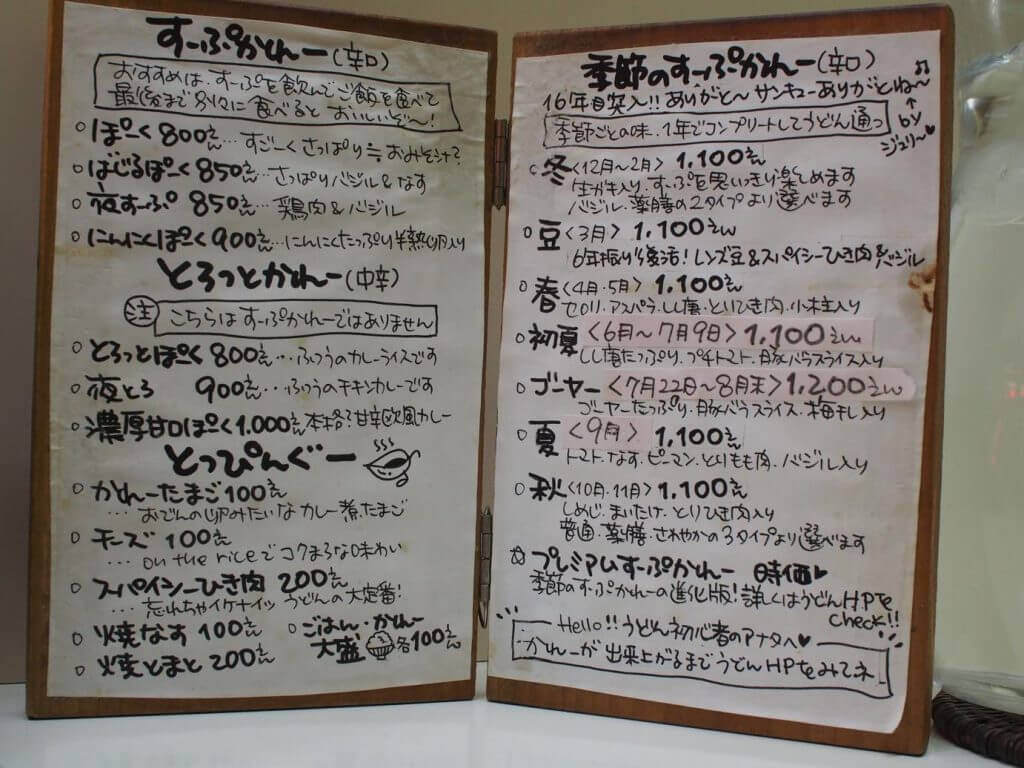 すーぷかれー(辛口)
おすすめは、すーぷを飲んでご飯を食べて
最後まで別々に食べると おいしいぞ〜!
○ ぽーく 800えん…すごーくさっぱり≒おみそ汁?
○ ばじるぽーく 850えん…さっぱりバジル&なす
○ 夜すーぷ 850えん…鶏肉&バジル
○ にんにくぽーく 900えん…にんにくたっぷり半熟卵入り
とろっとかれー(中辛)
注 こちらはすーぷかれーではありません
○ とろっとぽく 800えん…ふつうのカレーライスです
○ 夜とろ 900えん…ふつうのチキンカレーです
○ 濃厚甘口ぽく 1,000えん 本格!甘辛欧風カレー
とっぴんぐー
○ かれーたまご 100えん
…おでんの卵みたいなカレー煮たまご
○ チーズ 100えん
…on the riceでコクまろな味わい
○ スパイシーひき肉 200えん
…忘れちゃイケナイッ うどんの大定番!
○ 焼なす 100えん
○ 焼とまと 200えん
○ ごはん・かれー
大盛 各100えん
季節のすーぷかれー(辛口)
16年目突入!! ありがと〜 サンキューありがとね〜♫
↑by ジュリー♥
季節ごとの味、1年でコンプリートしてうどん通っ
○ 冬〈12月〜2月〉1,100えん
生ガキ入り、すーぷを思いっきり楽しめます
バジル、薬膳の2タイプより選べます
○ 豆〈3月〉1,100えん
6年振り復活! レンズ豆&スパイシーひき肉&バジル
○ 春〈4月・5月〉1,100えん
セロリ、アスパラ、しし唐、とりひき肉、小柱入り
○ 初夏〈6月〜7月9日〉1,100えん
しし唐たっぷり、プチトマト、豚バラスライス入り
○ ゴーヤー〈7月22日〜8月末〉1,200えん
ゴーヤーたっぷり、豚バラスライス、梅干し入り
○ 夏〈9月〉1,100えん
トマト、なす、ピーマン、とりもも肉、バジル入り
○ 秋〈10月・11月〉1,100えん
しめじ、まいたけ、とりひき肉入り
普通・薬膳・さわやかの3タイプより選べます
✿ プレミアムすーぷかれー 時価♥
季節のすーぷかれーの進化版! 詳しくはうどんHPを
check!!
Hello!! うどん初心者のアナタへ♥
かれーが出来上がるまでうどんHPをみてネ